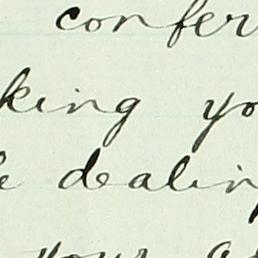 confer
king yo
e dealin
your a